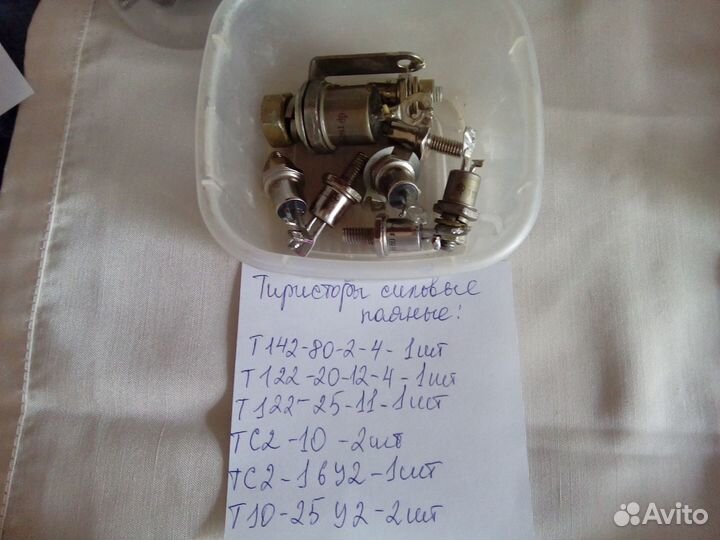 Тиристоры силовые
паяные!
Т142-80-2-4-1шт
Т122-20-12-4-1шт
Т122-25-11-1шт
ТС2-10-2шт
ТС2-16У2-1шт
Т10-25У2-2шт
Avito